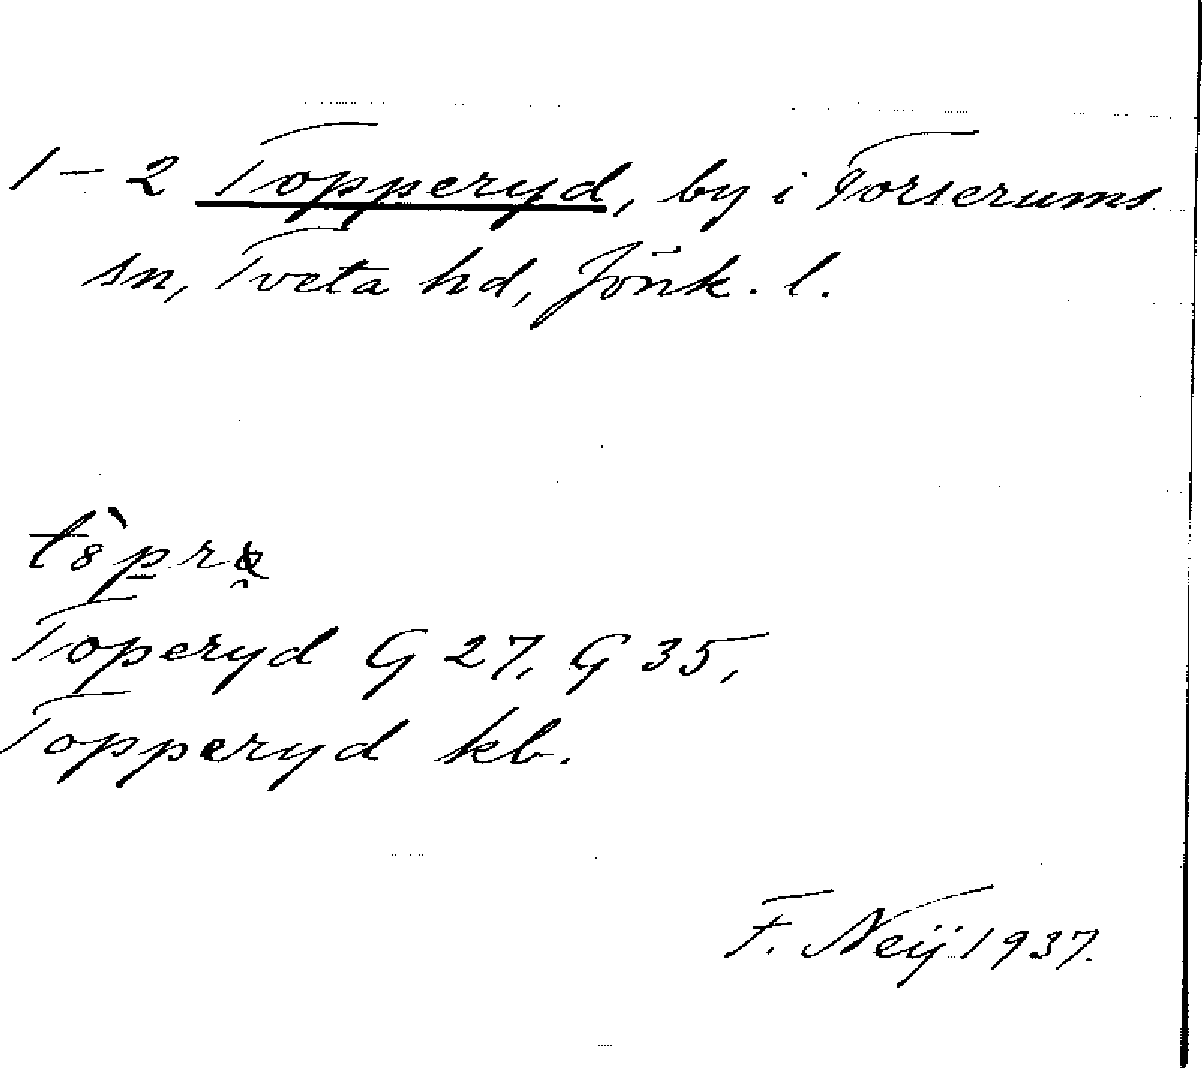 1-2 Topperyd, by i Forserums
sn, Tveta hd, Jönk. l.
Toperyd G 27, G 35,
Topperyd kb.
F. Neij 1937.